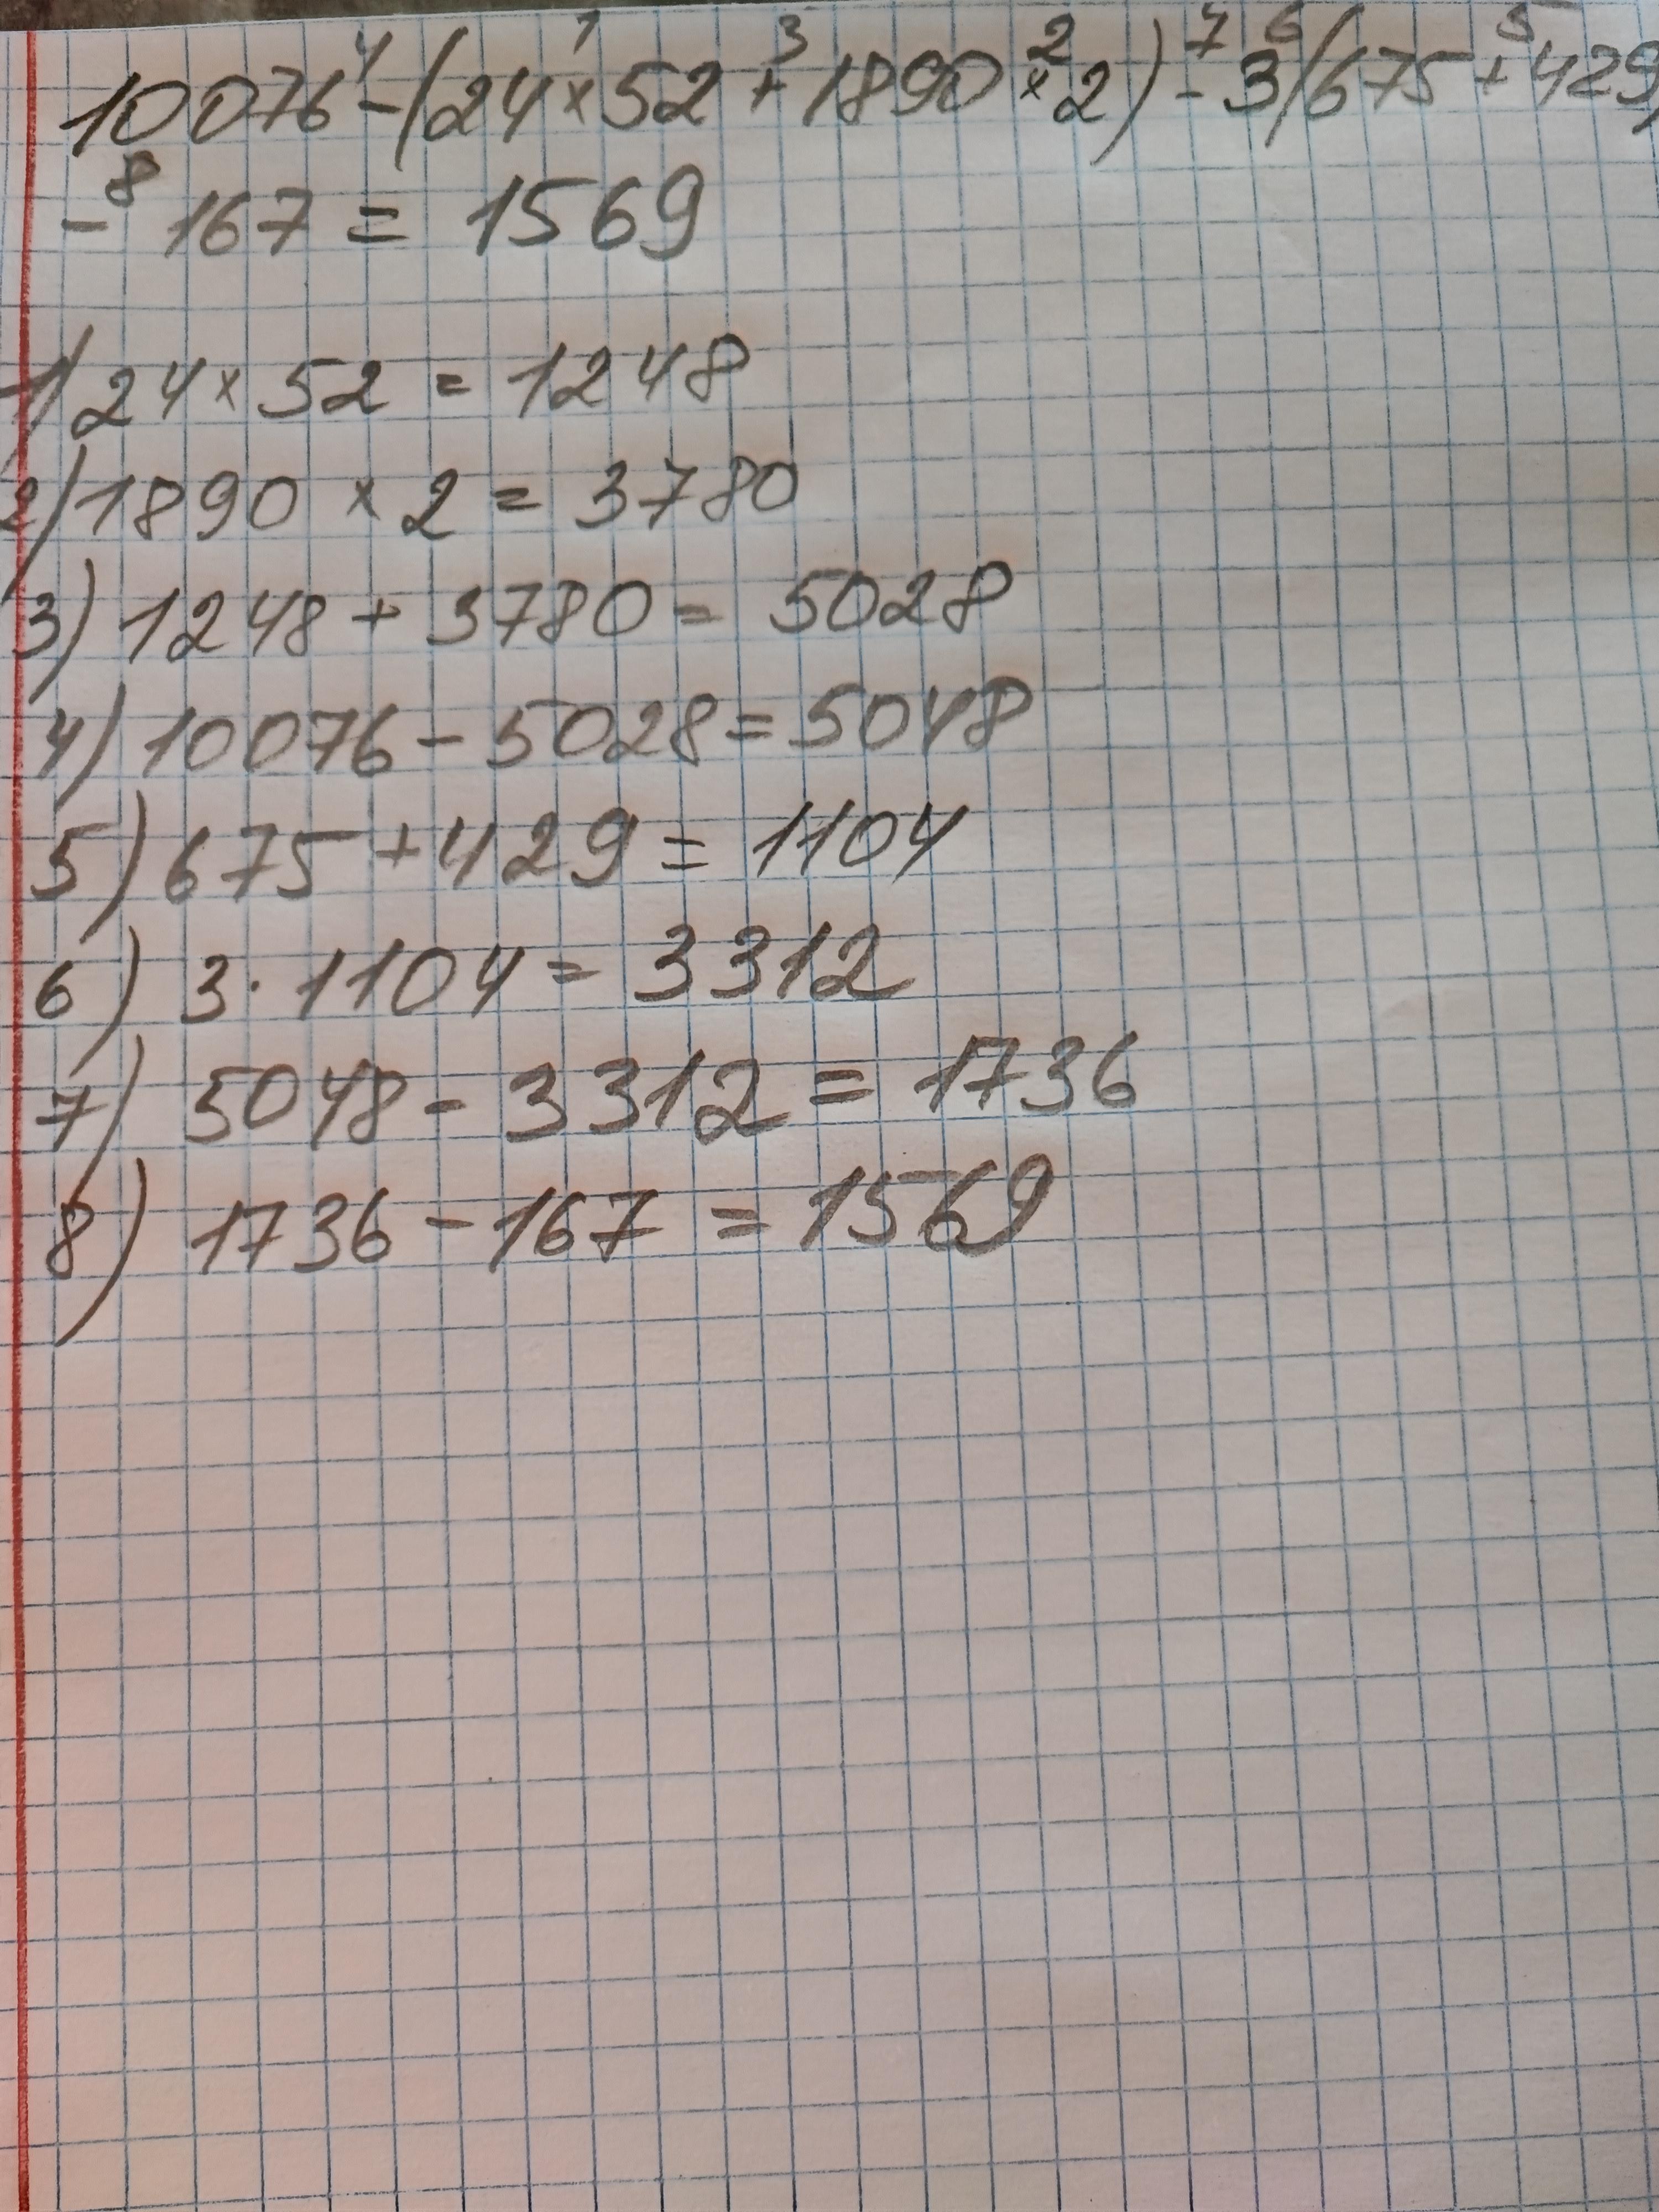 4 1 3 2 7 6 5
10076 - (24 × 52 + 1890 × 2) - 3(675 + 429)
8
- 167 = 1569
1) 24 × 52 = 1248
2) 1890 × 2 = 3780
3) 1248 + 3780 = 5028
4) 10076 - 5028 = 5048
5) 675 + 429 = 1104
6) 3 · 1104 = 3312
7) 5048 - 3312 = 1736
8) 1736 - 167 = 1569